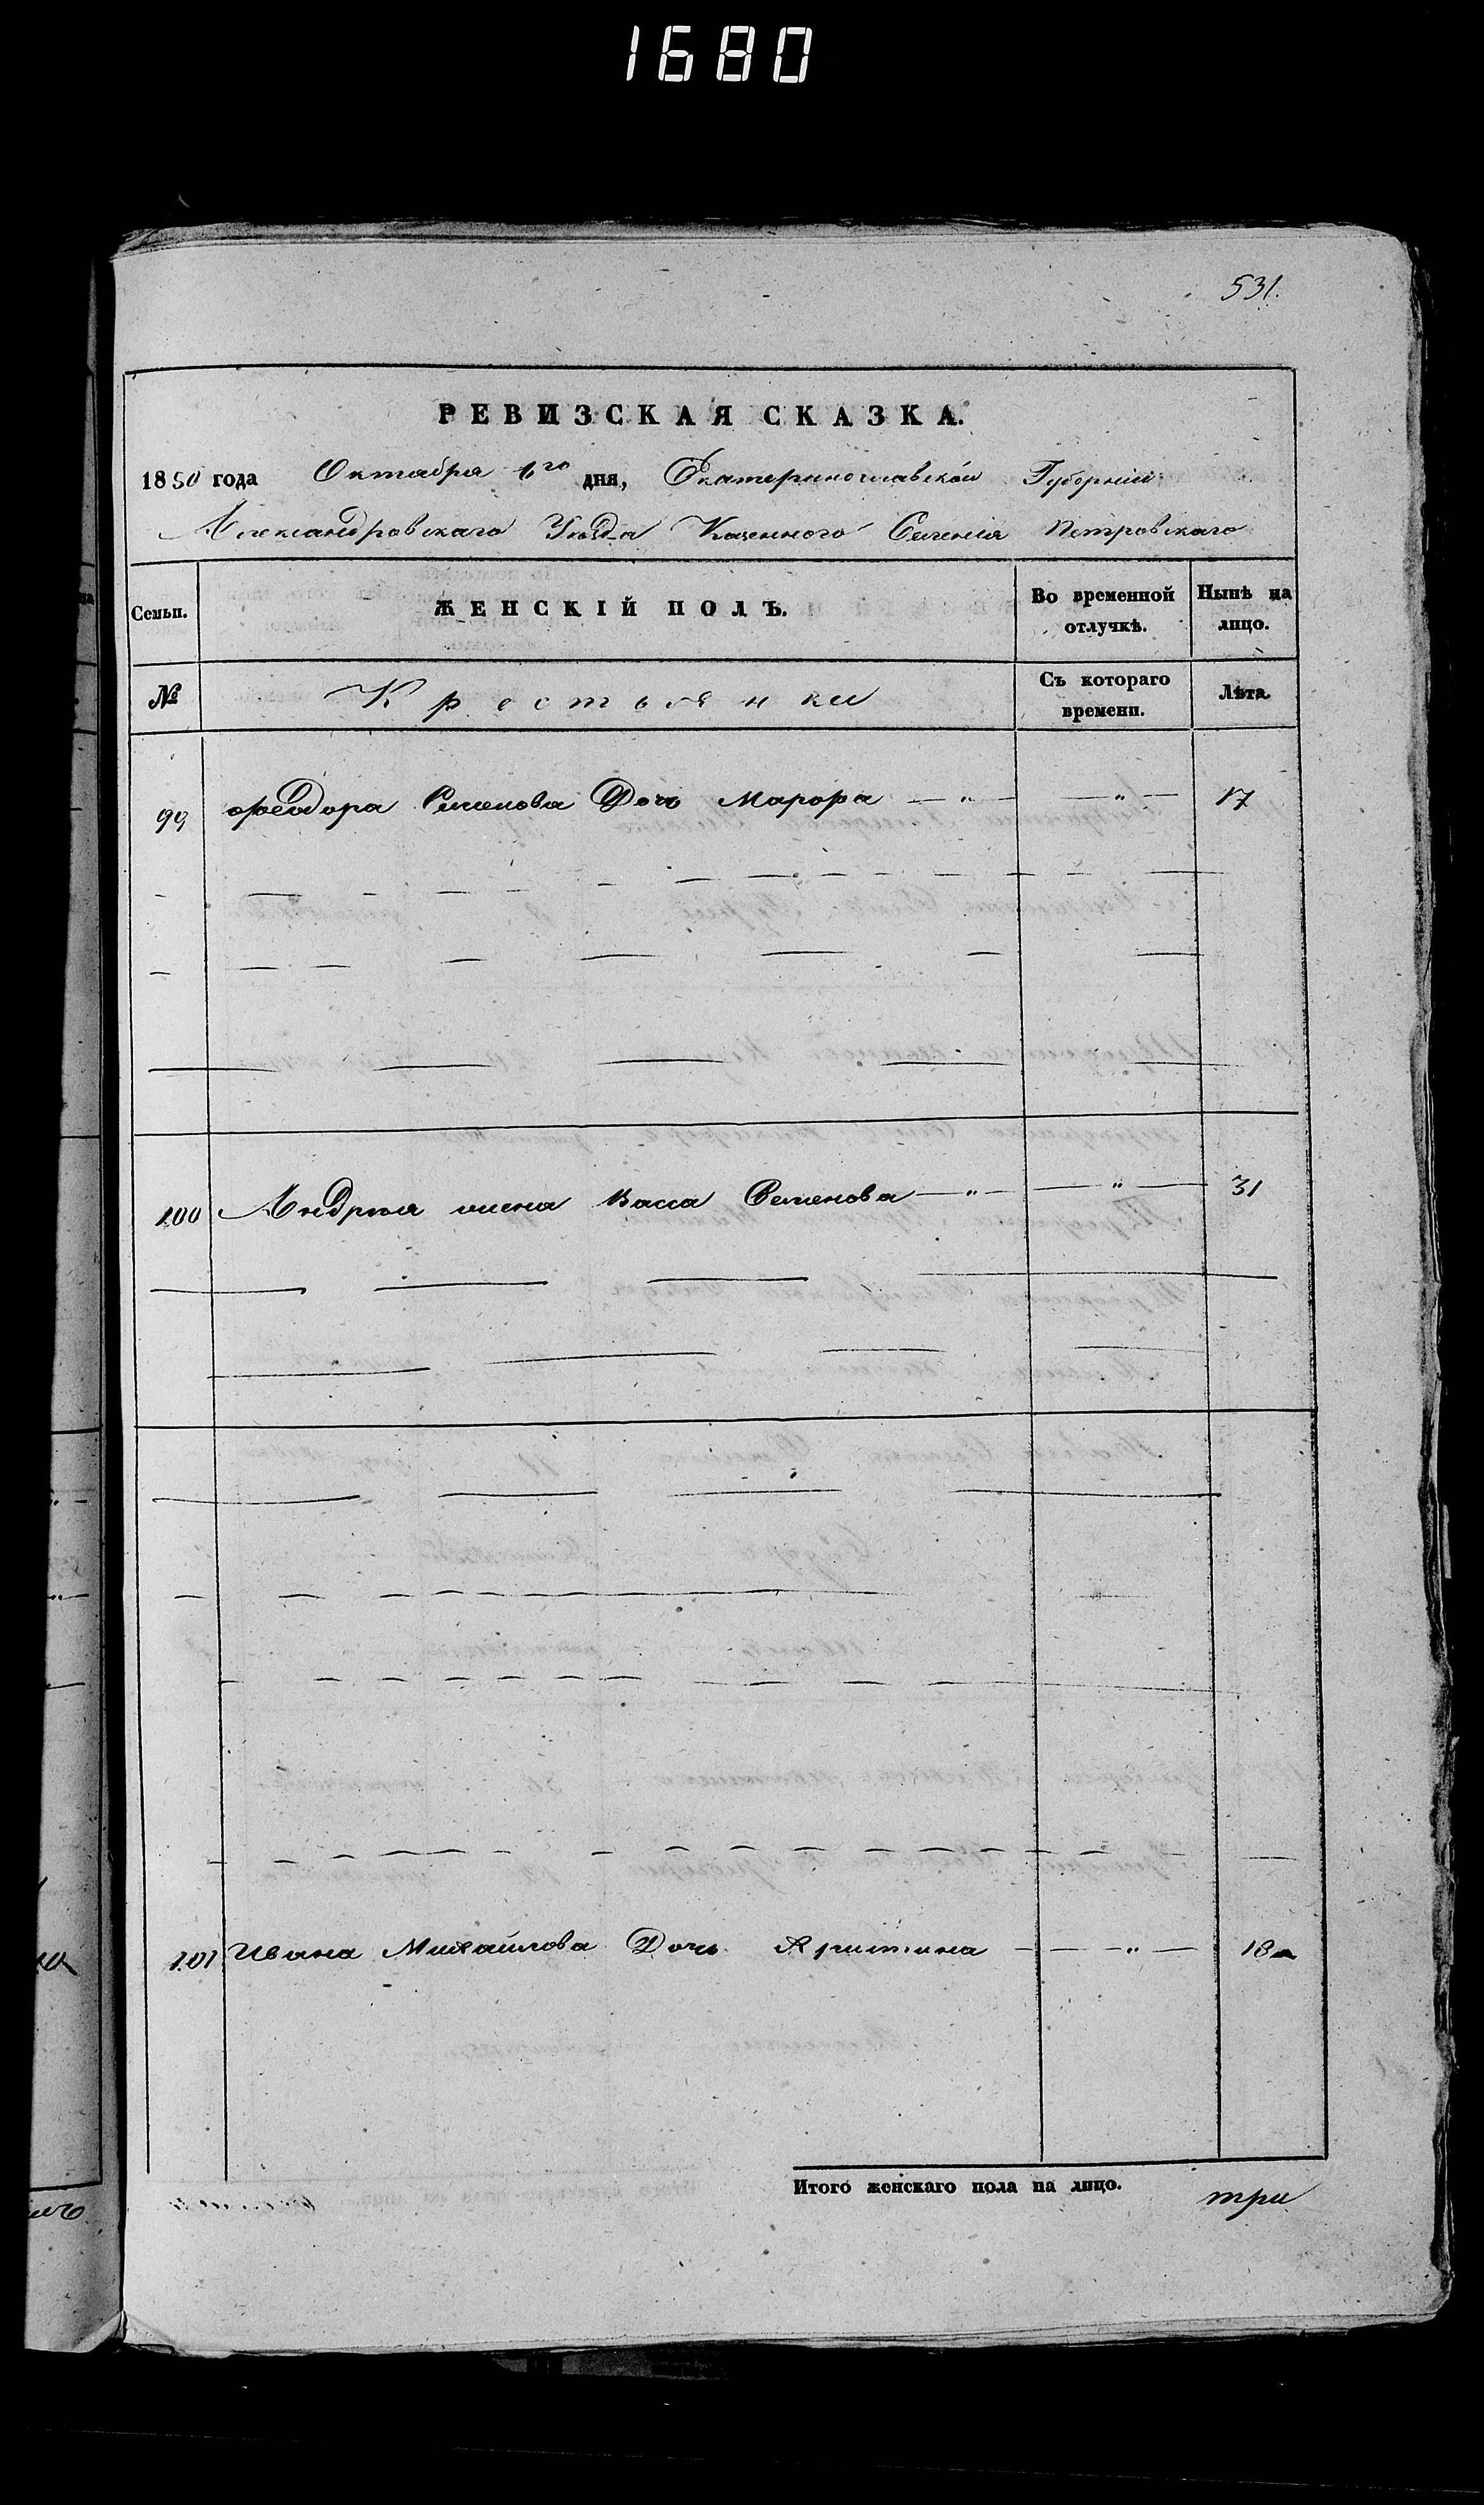 1680
531.
РЕВИЗСКАЯ СКАЗКА.
1850 года Октября 6го дня, Екатеринославской Губернии
Александровскаго Уезда Казенного Селения Петровскаго
Семьи. ЖЕНСКІЙ ПОЛЪ. Во временной отлучкѣ. Нынѣ на лицо.
№ Крестьянки Съ котораго времени. Лѣта.
99 Феодора Семенова Дочь Марфа — " — — " — 17
100 Андрея жена Васса Семенова — " — — " — 31
101 Ивана Михайлова Дочь Христина — — " — 18
Итого женскаго пола на лицо. три